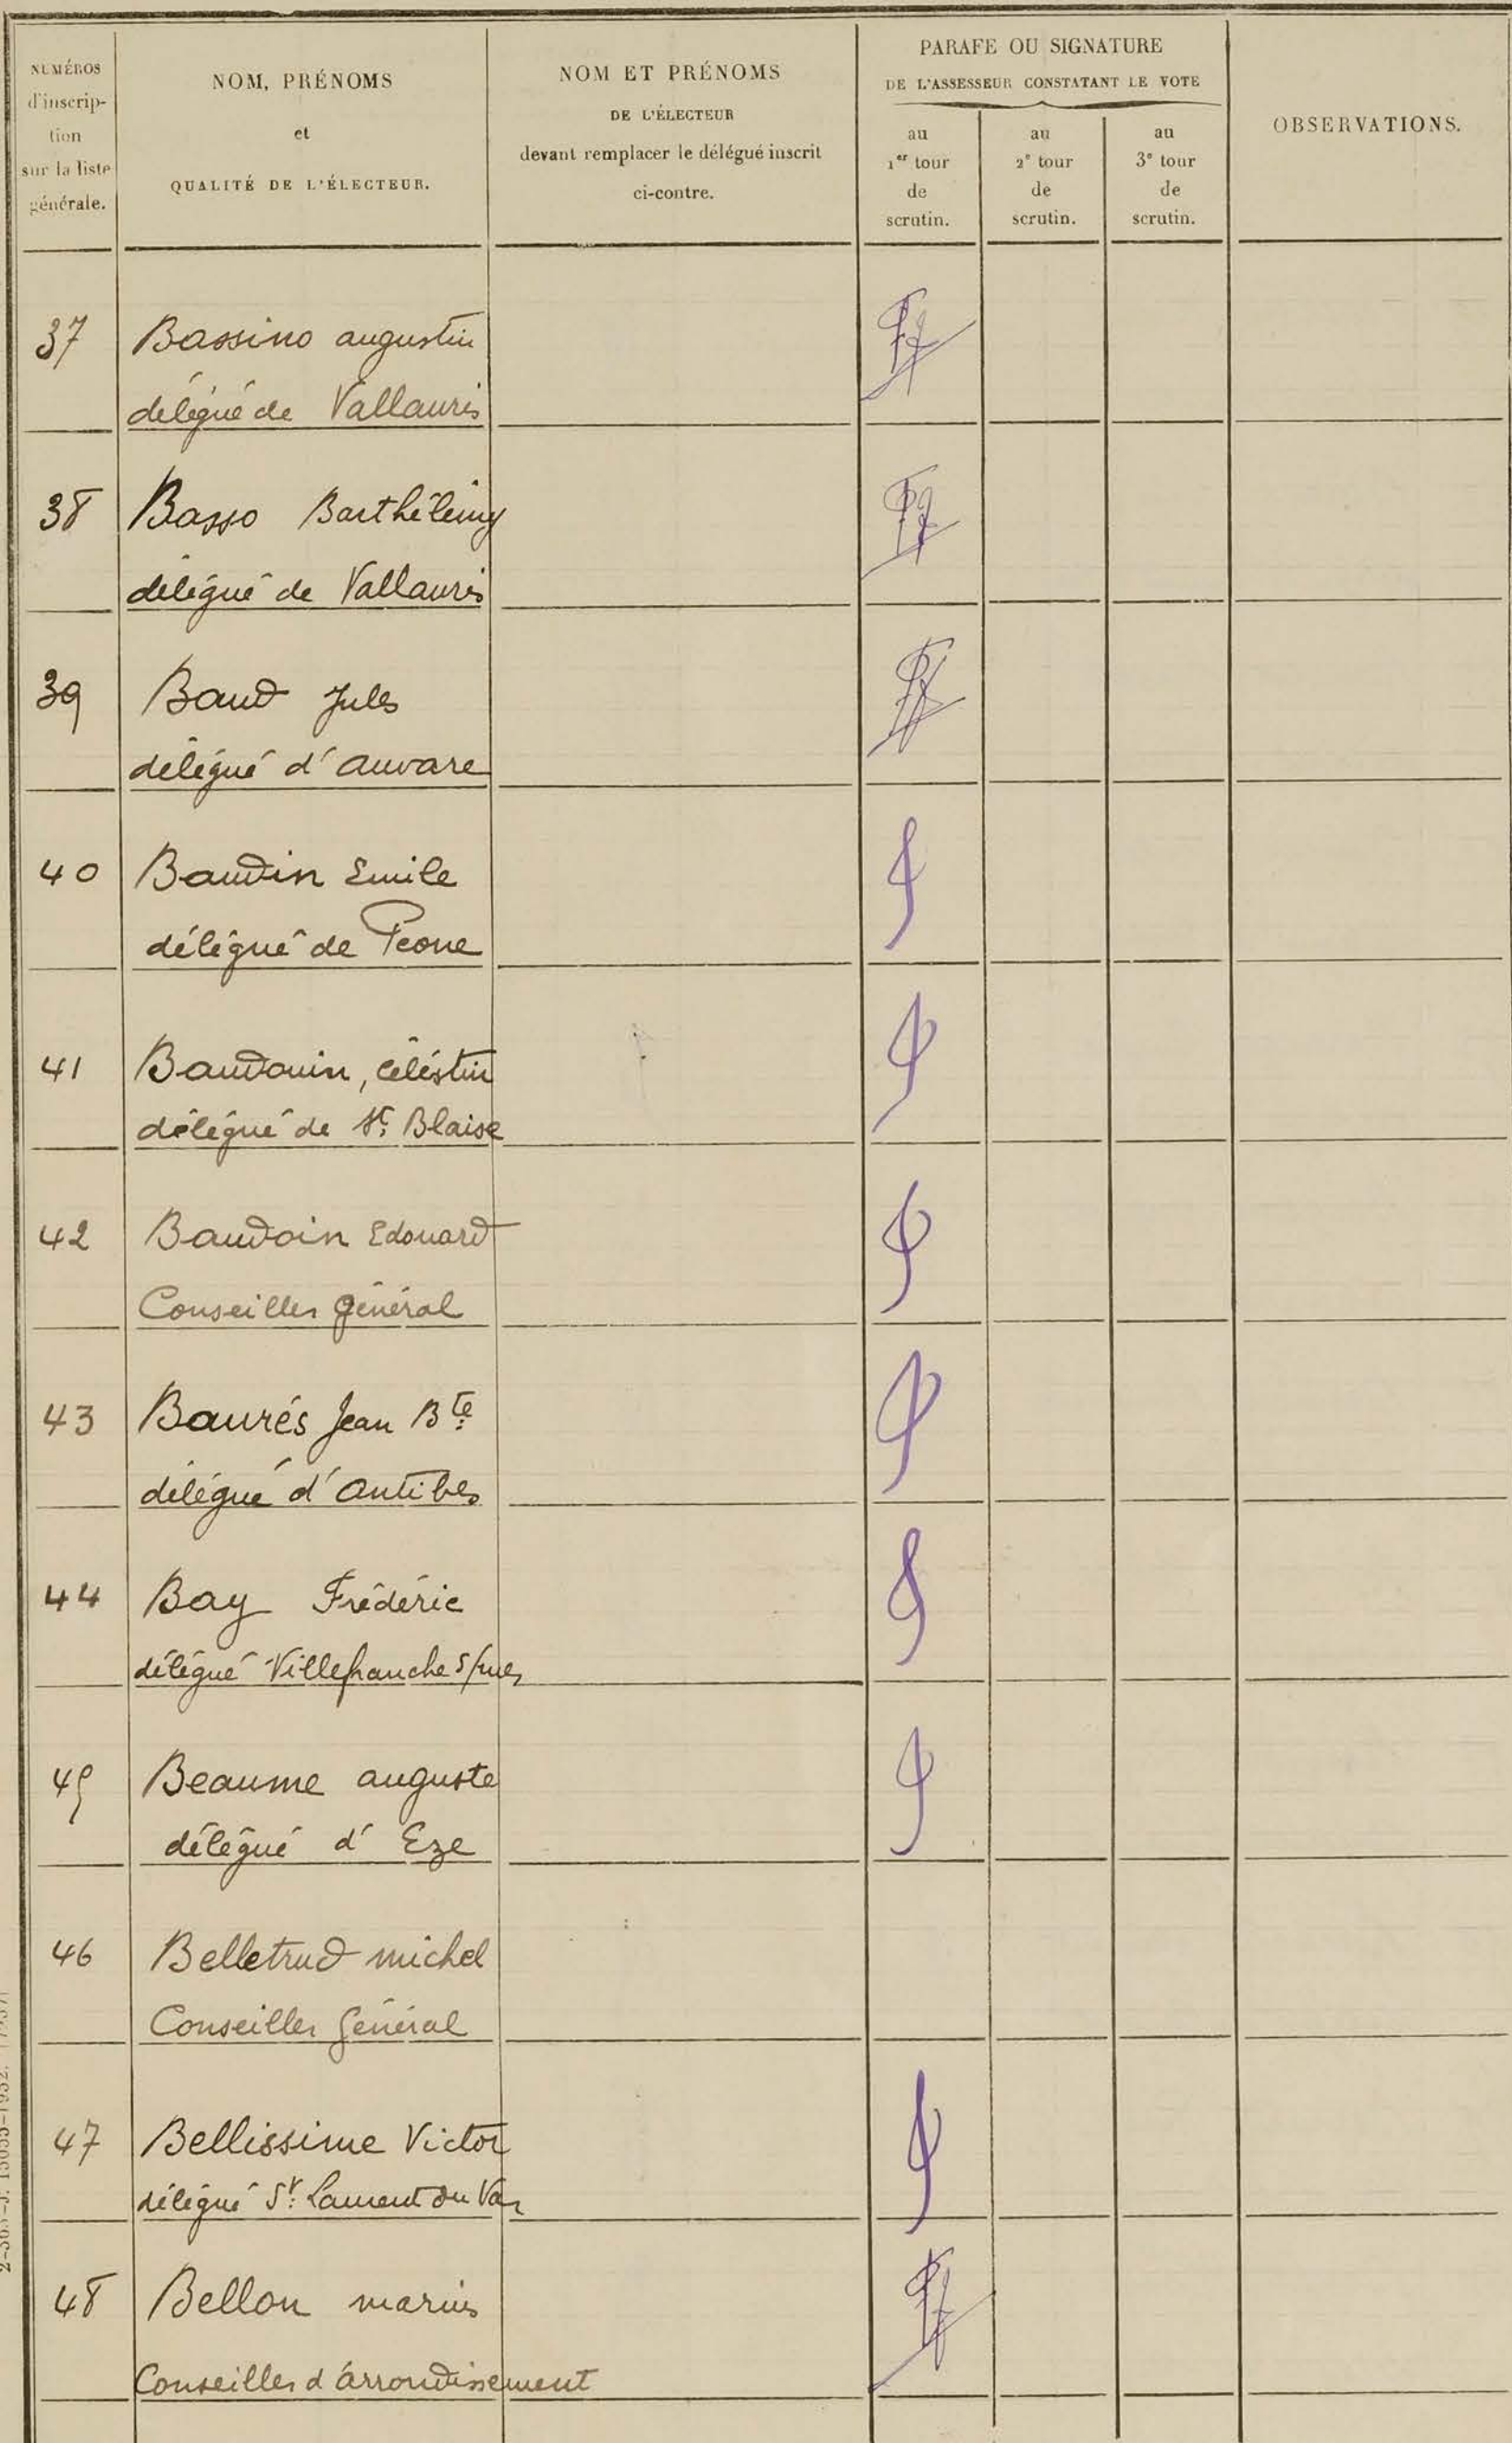 NUMÉROS
d'inscrip-
tion
sur la liste
générale.
NOM, PRÉNOMS
et
QUALITÉ DE L'ÉLECTEUR.
NOM ET PRÉNOMS
DE L'ÉLECTEUR
devant remplacer le délégué inscrit
ci-contre.
PARAFE OU SIGNATURE
DE L'ASSESSEUR CONSTATANT LE VOTE
au
1er tour
de
scrutin.
au
2e tour
de
scrutin.
au
3e tour
de
scrutin.
OBSERVATIONS.
37 Bassino augustin
délégué de Vallauris
38 Basso Barthélemy
délégué de Vallauris
39 Baud Jules
délégué d'auvare
40 Baudin Emile
délégué de Peone
41 Baudouin, céléstin
délégué de St. Blaise
42 Baudoin Edouard
Conseiller général
43 Baurés Jean Bte
délégué d'antibes
44 Bay Frédéric
délégué Villefranche s/mer
45 Beaume auguste
délégué d'Eze
46 Belletrud michel
Conseiller Général
47 Bellissime Victor
délégué St. Laurent du Var
48 Bellon marius
Conseiller d'arrondissement